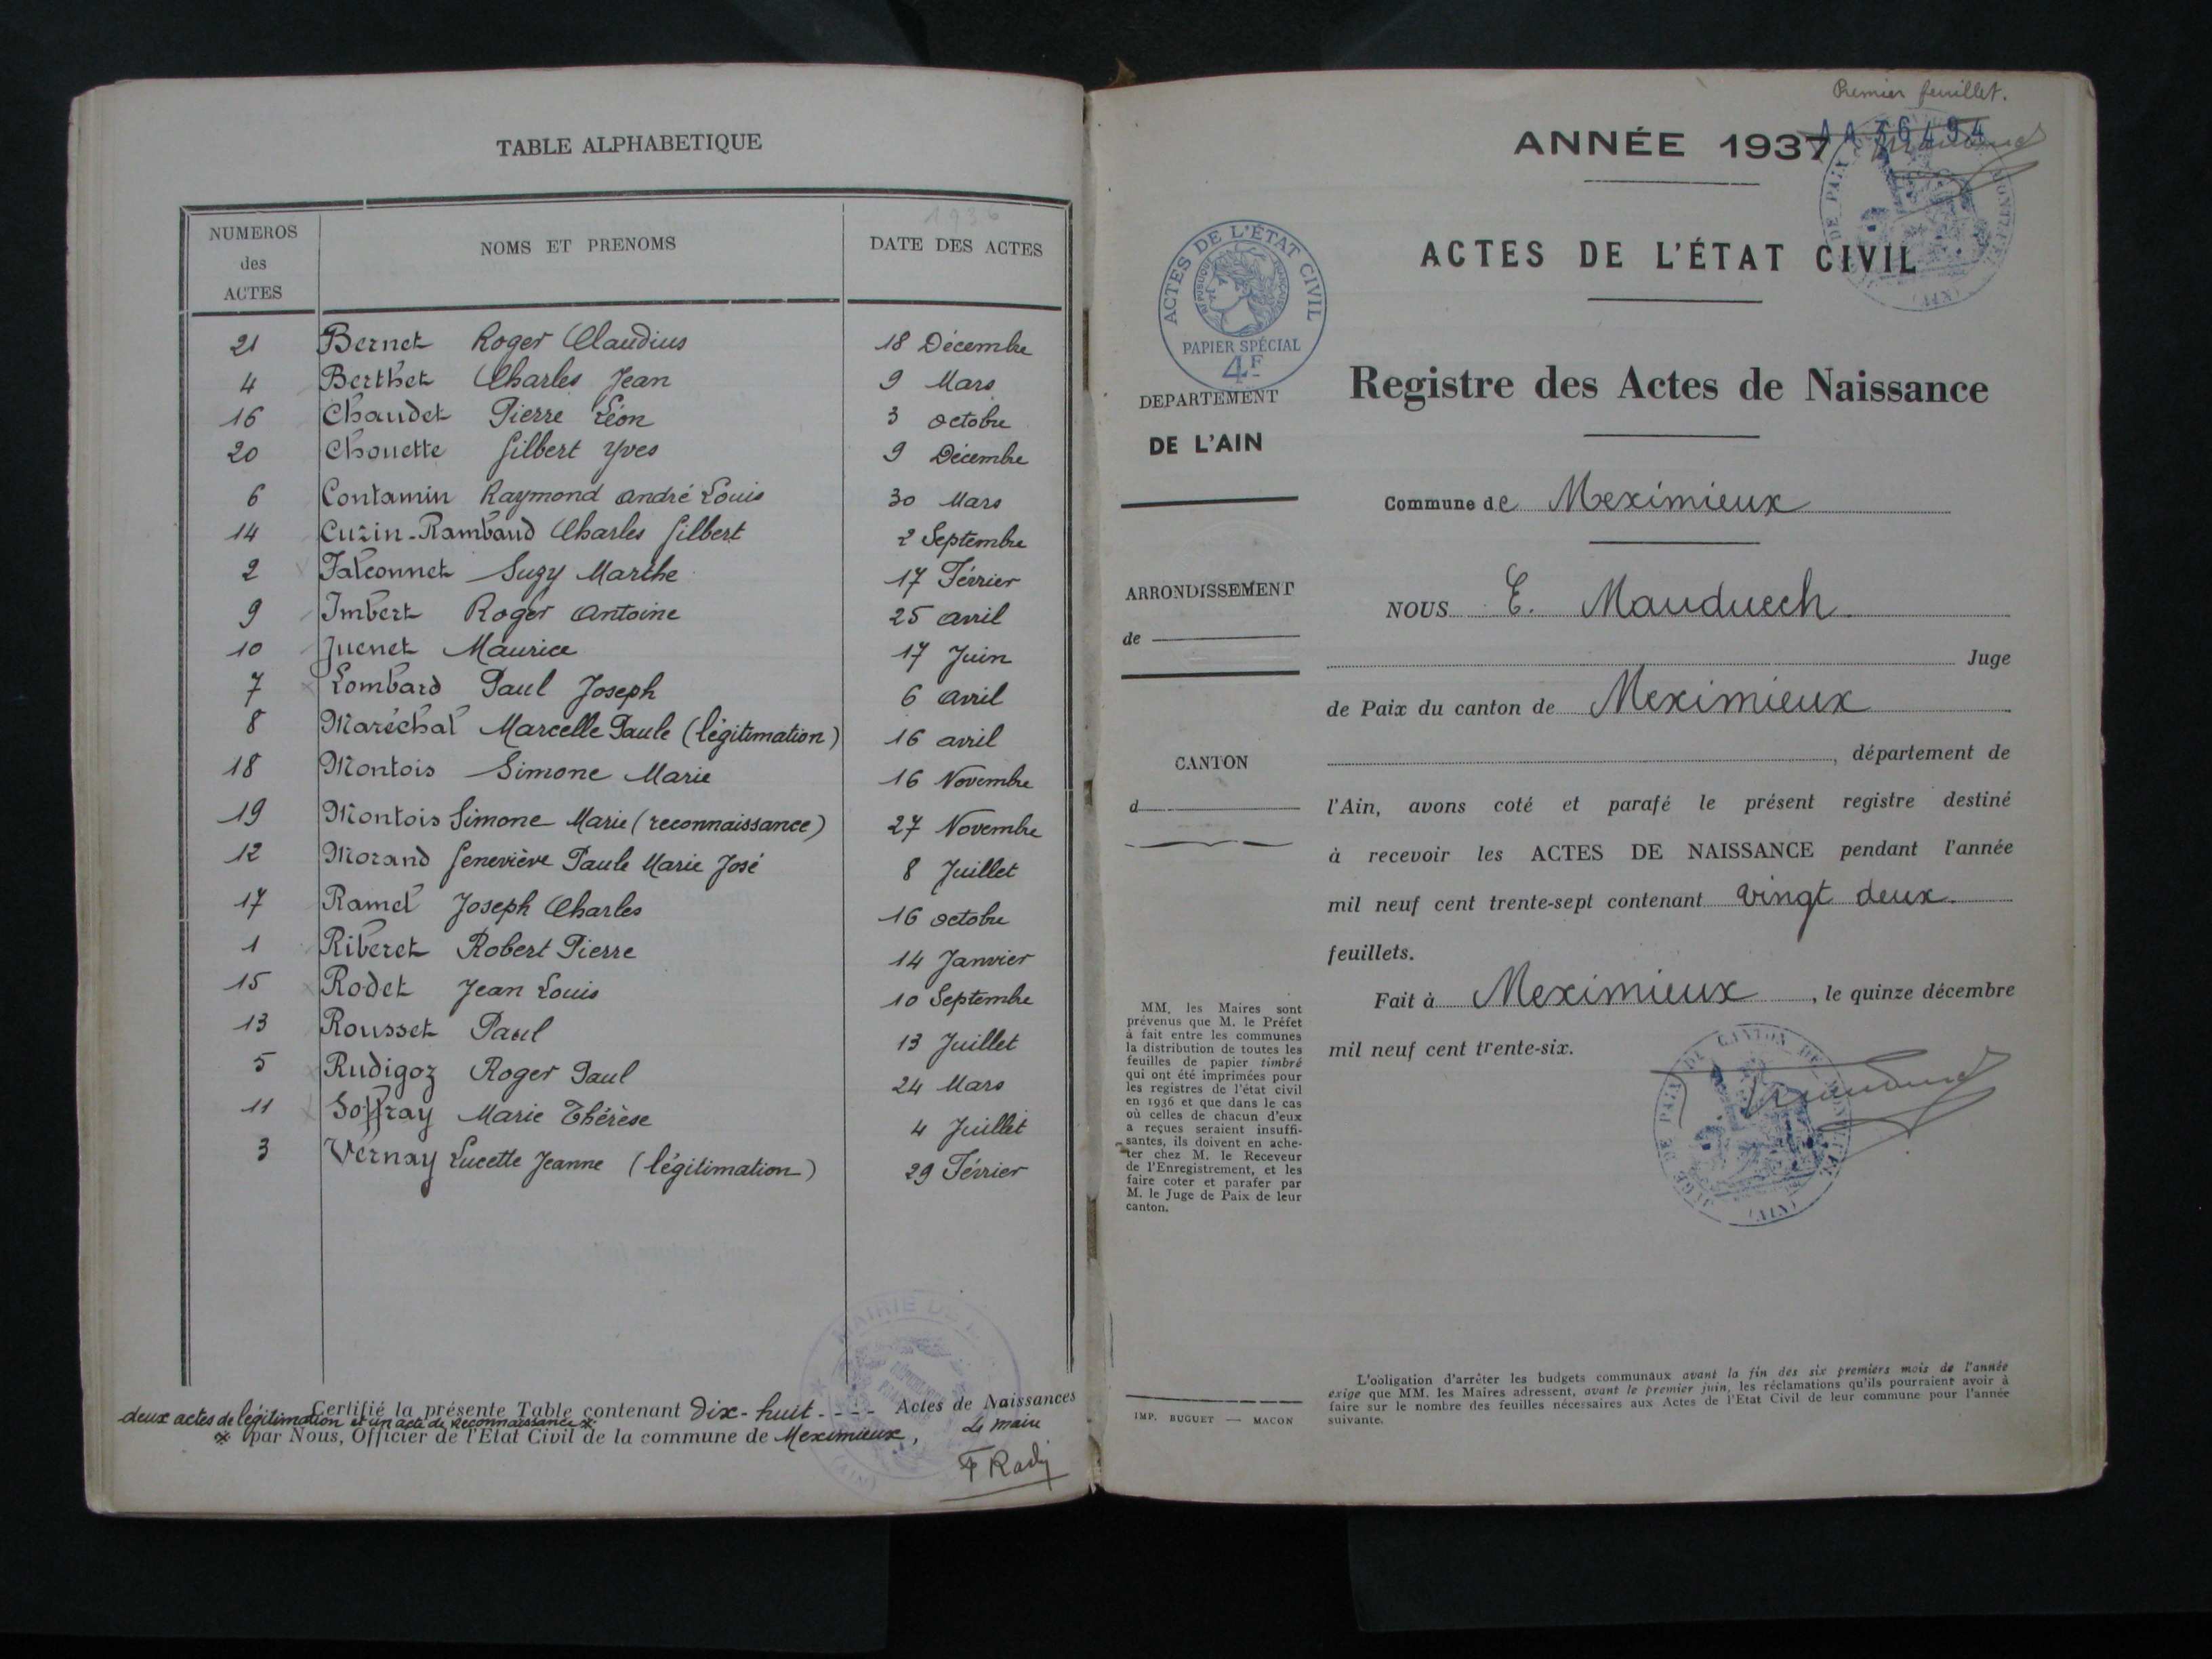 TABLE ALPHABETIQUE
1936
NUMEROS des ACTES NOMS ET PRENOMS DATE DES ACTES
21 Bernet Roger Claudius 18 Décembre
4 Berthet Charles Jean 9 Mars
16 Chaudet Pierre Léon 3 octobre
20 Chouette Gilbert Yves 9 Décembre
6 Contamin Raymond André Louis 30 Mars
14 Cuzin-Rambaud Charles Gilbert 2 Septembre
2 Falconnet Suzy Marthe 17 Février
9 Imbert Roger Antoine 25 avril
10 Juenet Maurice 17 Juin
7 Lombard Paul Joseph 6 avril
8 Maréchal Marcelle Paule (légitimation) 16 avril
18 Montois Simone Marie 16 Novembre
19 Montois Simone Marie (reconnaissance) 27 Novembre
12 Morand Geneviève Paule Marie José 8 Juillet
17 Ramel Joseph Charles 16 octobre
1 Riberet Robert Pierre 14 Janvier
15 Rodet Jean Louis 10 Septembre
13 Rousset Paul 13 Juillet
5 Rudigoz Roger Paul 24 Mars
11 Soffray Marie Thérèse 4 Juillet
3 Vernay Lucette Jeanne (légitimation) 29 Février
Certifié la présente Table contenant Dix-huit Actes de Naissances
deux actes de légitimation et un acte de reconnaissance *
* par Nous, Officier de l'Etat Civil de la commune de Meximieux,
Le maire
Premier feuillet.
ANNÉE 1937
ACTES DE L'ÉTAT CIVIL
ACTES DE L'ÉTAT CIVIL
RÉPUBLIQUE FRANÇAISE
PAPIER SPÉCIAL
4F
DEPARTEMENT
DE L'AIN
Registre des Actes de Naissance
Commune de Meximieux
ARRONDISSEMENT
de
NOUS E. Mauduech
Juge
de Paix du canton de Meximieux
CANTON
d
, département de
l'Ain, avons coté et parafé le présent registre destiné
à recevoir les ACTES DE NAISSANCE pendant l'année
mil neuf cent trente-sept contenant vingt deux
feuillets.
Fait à Meximieux, le quinze décembre
mil neuf cent trente-six.
MM. les Maires sont
prévenus que M. le Préfet
à fait entre les communes
la distribution de toutes les
feuilles de papier timbré
qui ont été imprimées pour
les registres de l'état civil
en 1936 et que dans le cas
où celles de chacun d'eux
a reçues seraient insuffi-
santes, ils doivent en ache-
ter chez M. le Receveur
de l'Enregistrement, et les
faire coter et parafer par
M. le Juge de Paix de leur
canton.
IMP. BUGUET — MACON
L'obligation d'arrêter les budgets communaux avant la fin des six premiers mois de l'année
exige que MM. les Maires adressent, avant le premier juin, les réclamations qu'ils pourraient avoir à
faire sur le nombre des feuilles nécessaires aux Actes de l'Etat Civil de leur commune pour l'année
suivante.